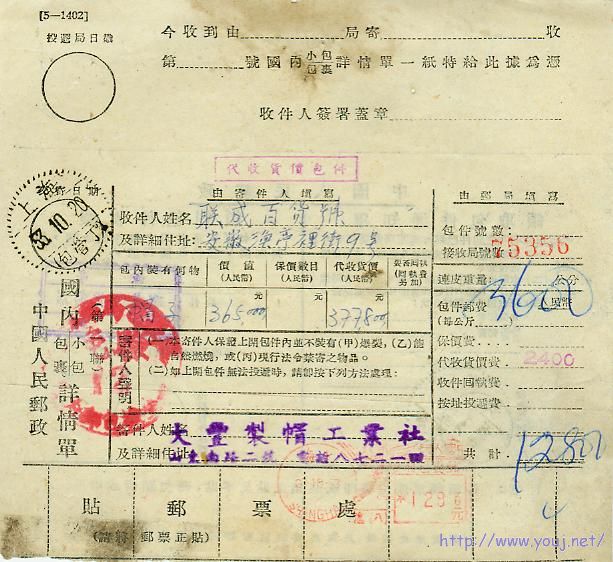 [5—1402]
投遞局日戳
今收到由 局寄 收
第 號國內小包包裹詳情單一紙特給此據為憑
收件人簽署蓋章
代收貨價包件
上海
53.10.29
由寄件人填寫
由郵局填寫
收件人姓名 聯成百貨號
及詳細住址:
包件號數:
接收局號數: 75356
包內裝有何物
價值(人民幣)
保價數目(人民幣)
代收貨價(人民幣)
要否回執(回執費另加)
連皮重量: 3600 公分
帽子 365,000元 元 377,800元
包件郵費
(每公斤
保價費
代收貨價費: 2400
收件回執費
按址投遞費
共計: 12800
國內小包包裹詳情單
中國人民郵政
寄件人聲明
(一)本寄件人保證上開包件內並不裝有(甲)爆裂,(乙)能
自然燃燒,或(丙)現行法令禁寄之物品。
(二)如上開包件無法投遞時,請卽按下列方法處理:
寄件人姓名
及詳細住址:
大豐製帽工業社
山東南路二號 電話八七二一四
貼郵票處
(請將郵票正貼)
http://www.youj.net/